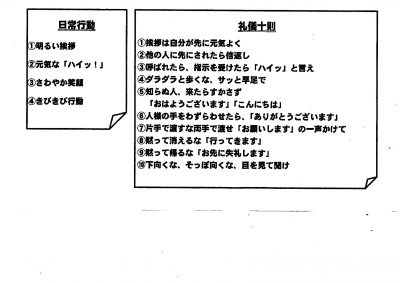 日常行動
①明るい挨拶
②元気な「ハイッ！」
③さわやか笑顔
④きびきび行動
礼儀十則
①挨拶は自分が先に元気よく
②他の人に先にされたら倍返し
③呼ばれたら、指示を受けたら「ハイッ」と言え
④ダラダラと歩くな、サッと早足で
⑤知らぬ人、来たらすかさず
「おはようございます」「こんにちは」
⑥人様の手をわずらわせたら、「ありがとうございます」
⑦片手で渡すな両手で渡せ「お願いします」の一声かけて
⑧黙って消えるな「行ってきます」
⑨黙って帰るな「お先に失礼します」
⑩下向くな、そっぽ向くな、目を見て聞け